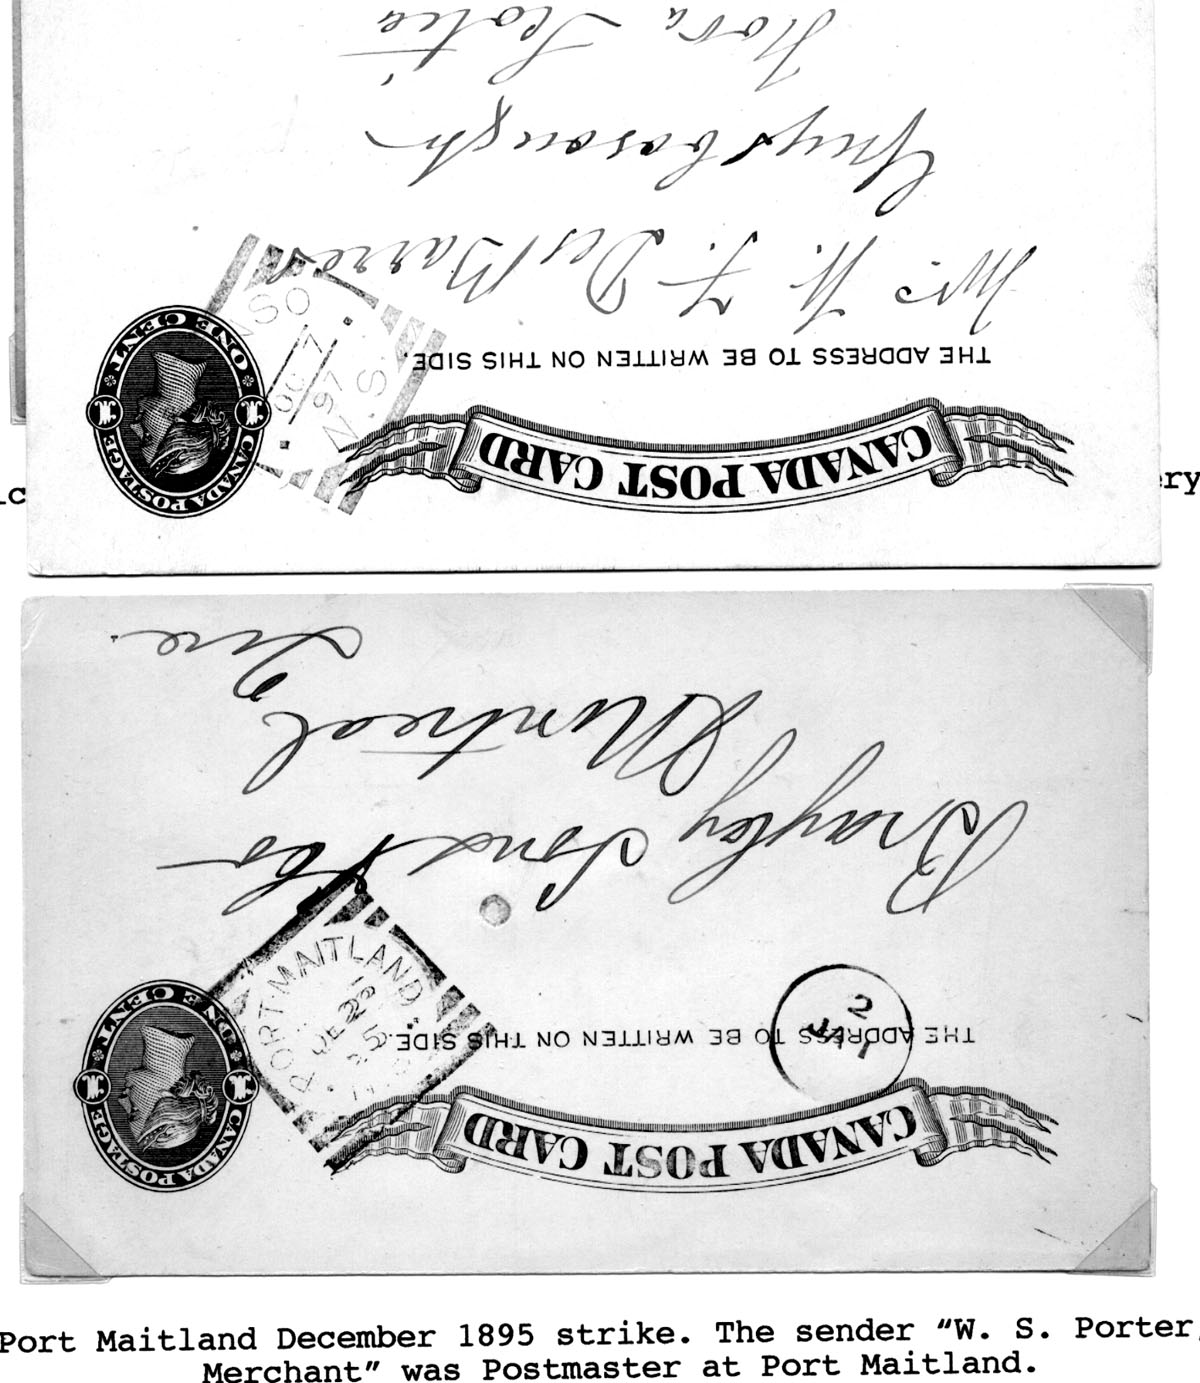 CANADA POST CARD
THE ADDRESS TO BE WRITTEN ON THIS SIDE.
CANADA POSTAGE
ONE CENT
1 1
NSO
OC 7
97
N.S.
Mr. W. F. DesBarres
Guysborough
Nova Scotia
ic
ery
CANADA POST CARD
THE ADDRESS TO BE WRITTEN ON THIS SIDE.
CANADA POSTAGE
ONE CENT
1 1
2
PORT·MAITLAND
DE
95
Brayley Sons & Co
Montreal
Que.
Port Maitland December 1895 strike. The sender “W. S. Porter,
Merchant” was Postmaster at Port Maitland.